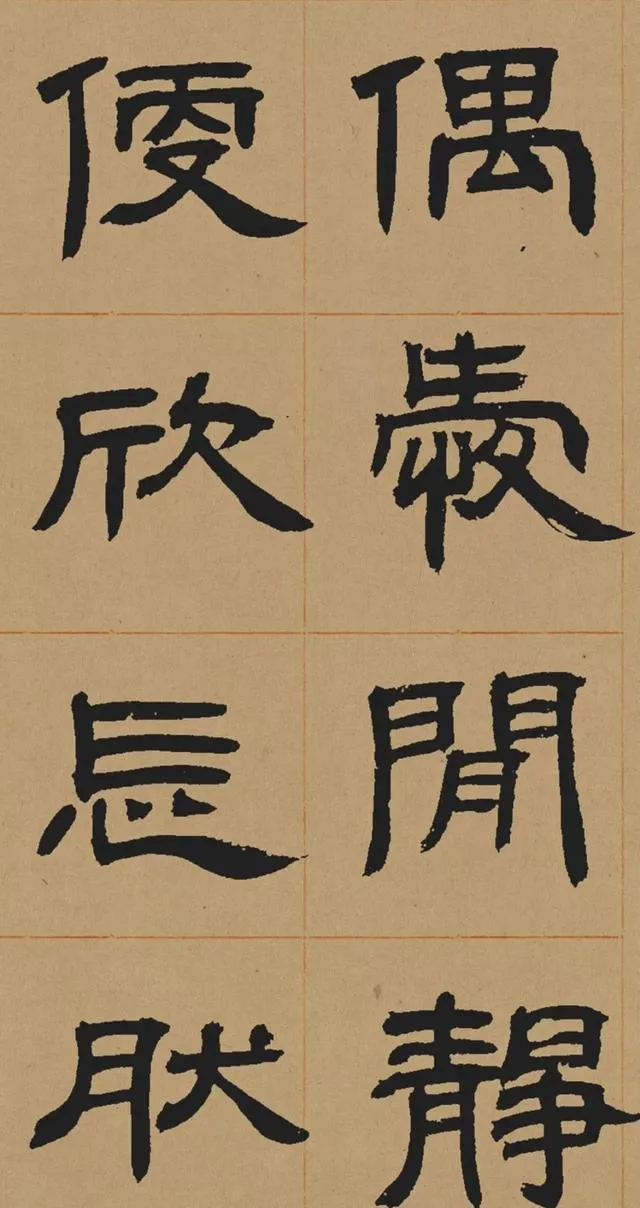 偶愛閒靜
便欣忘肰